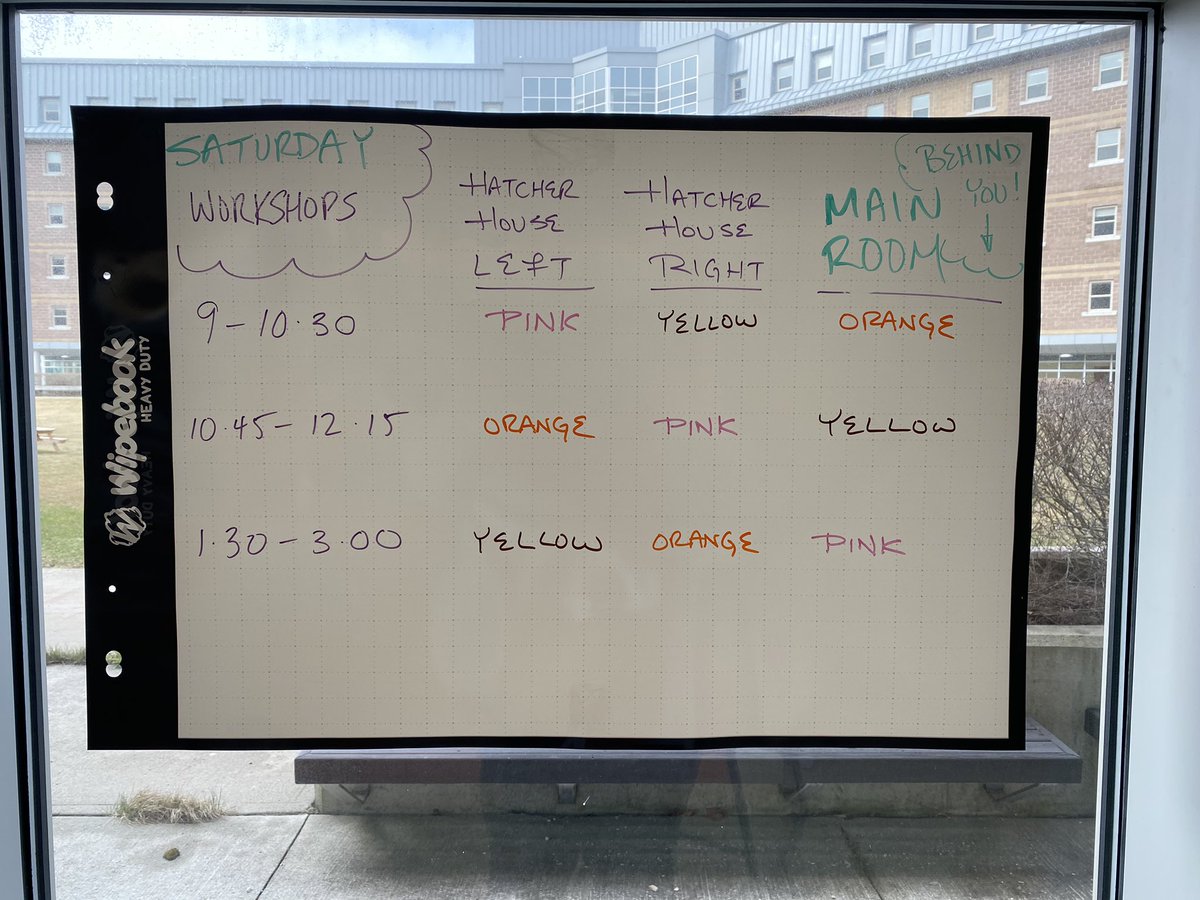 SATURDAY
WORKSHOPS
HATCHER
HOUSE
LEFT
HATCHER
HOUSE
RIGHT
MAIN
ROOM
BEHIND
YOU!
9-10.30 PINK YELLOW ORANGE
10.45-12.15 ORANGE PINK YELLOW
1.30-3.00 YELLOW ORANGE PINK
Wipebook
HEAVY DUTY